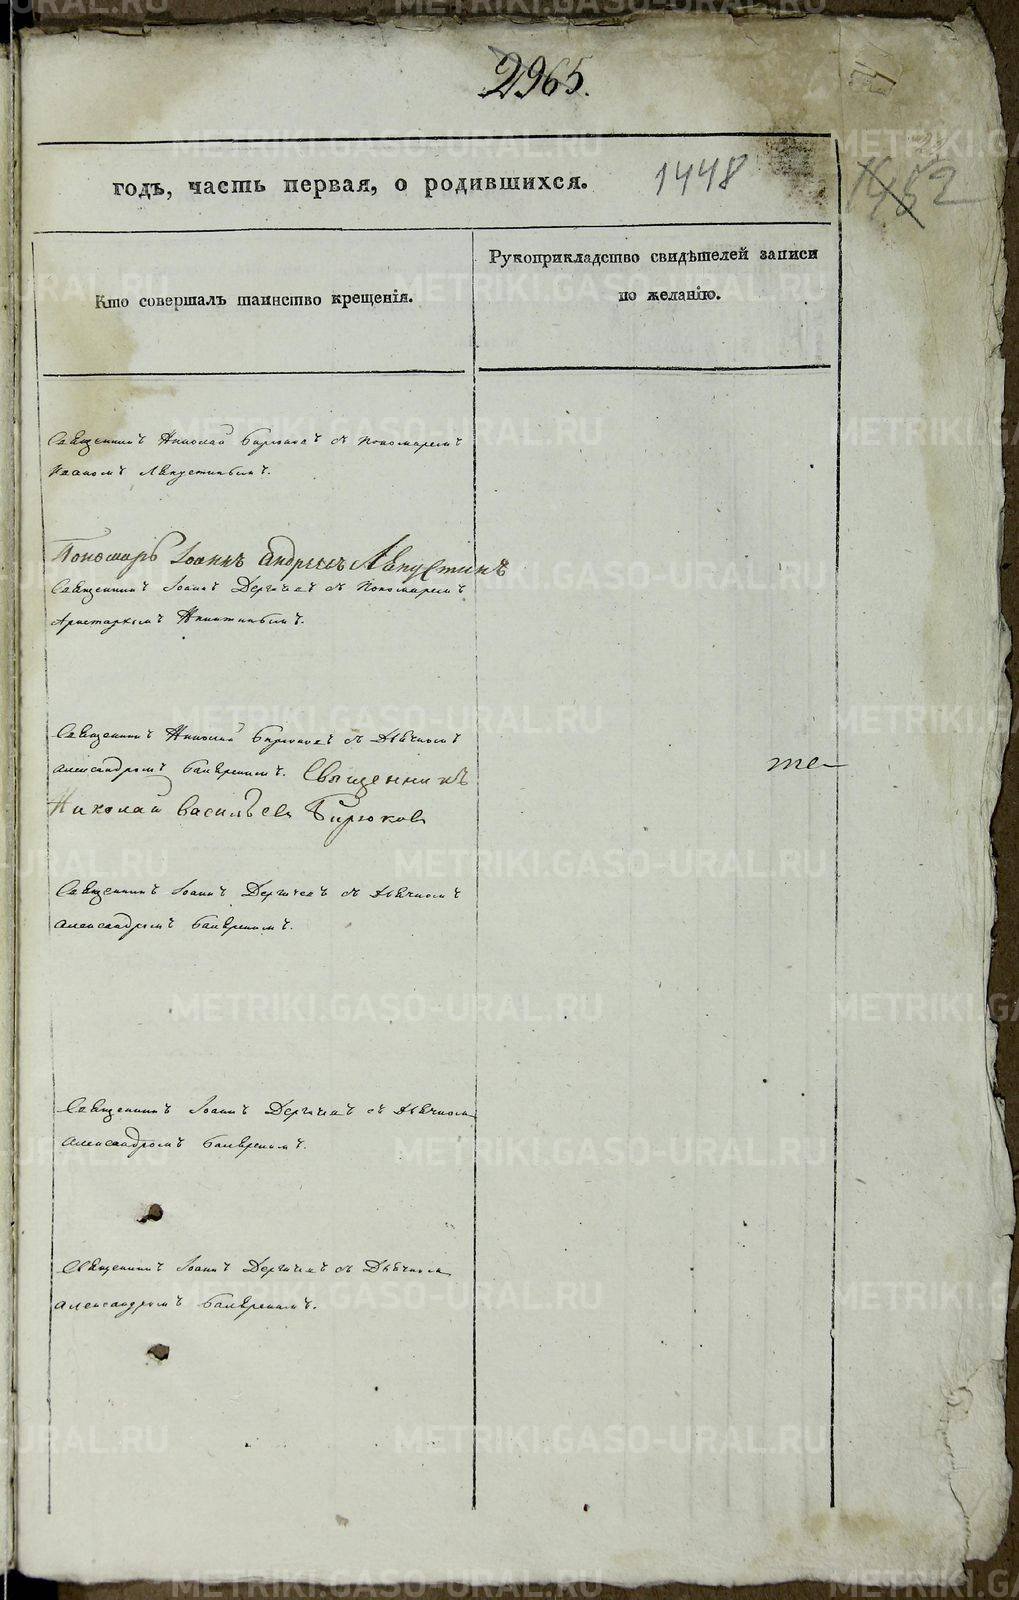 2965.
годъ, часть первая, о родившихся.
1448
1452
Кто совершалъ таинство крещенія.
Рукоприкладство свидѣтелей записи
по желанію.
Священникъ Николай Бирюковъ съ пономаремъ
Иваномъ Августинымъ.
Пономарь Іоаннъ Андреевъ Августинъ
Священникъ Іоаннъ Дергачевъ съ Пономаремъ
Аристархомъ Никитинымъ.
Священникъ Николай Бирюковъ съ Дьячкомъ
Александромъ Бовѣренымъ. Священникъ
Николай Васильевъ Бирюковъ
те
Священникъ Іоаннъ Дергачевъ съ Дьячкомъ
Александромъ
Священникъ Іоаннъ Дергачевъ съ Дьячкомъ
Александромъ
Священникъ Іоаннъ Дергачевъ съ Дьячкомъ
Александромъ
METRIKI.GASO-URAL.RU